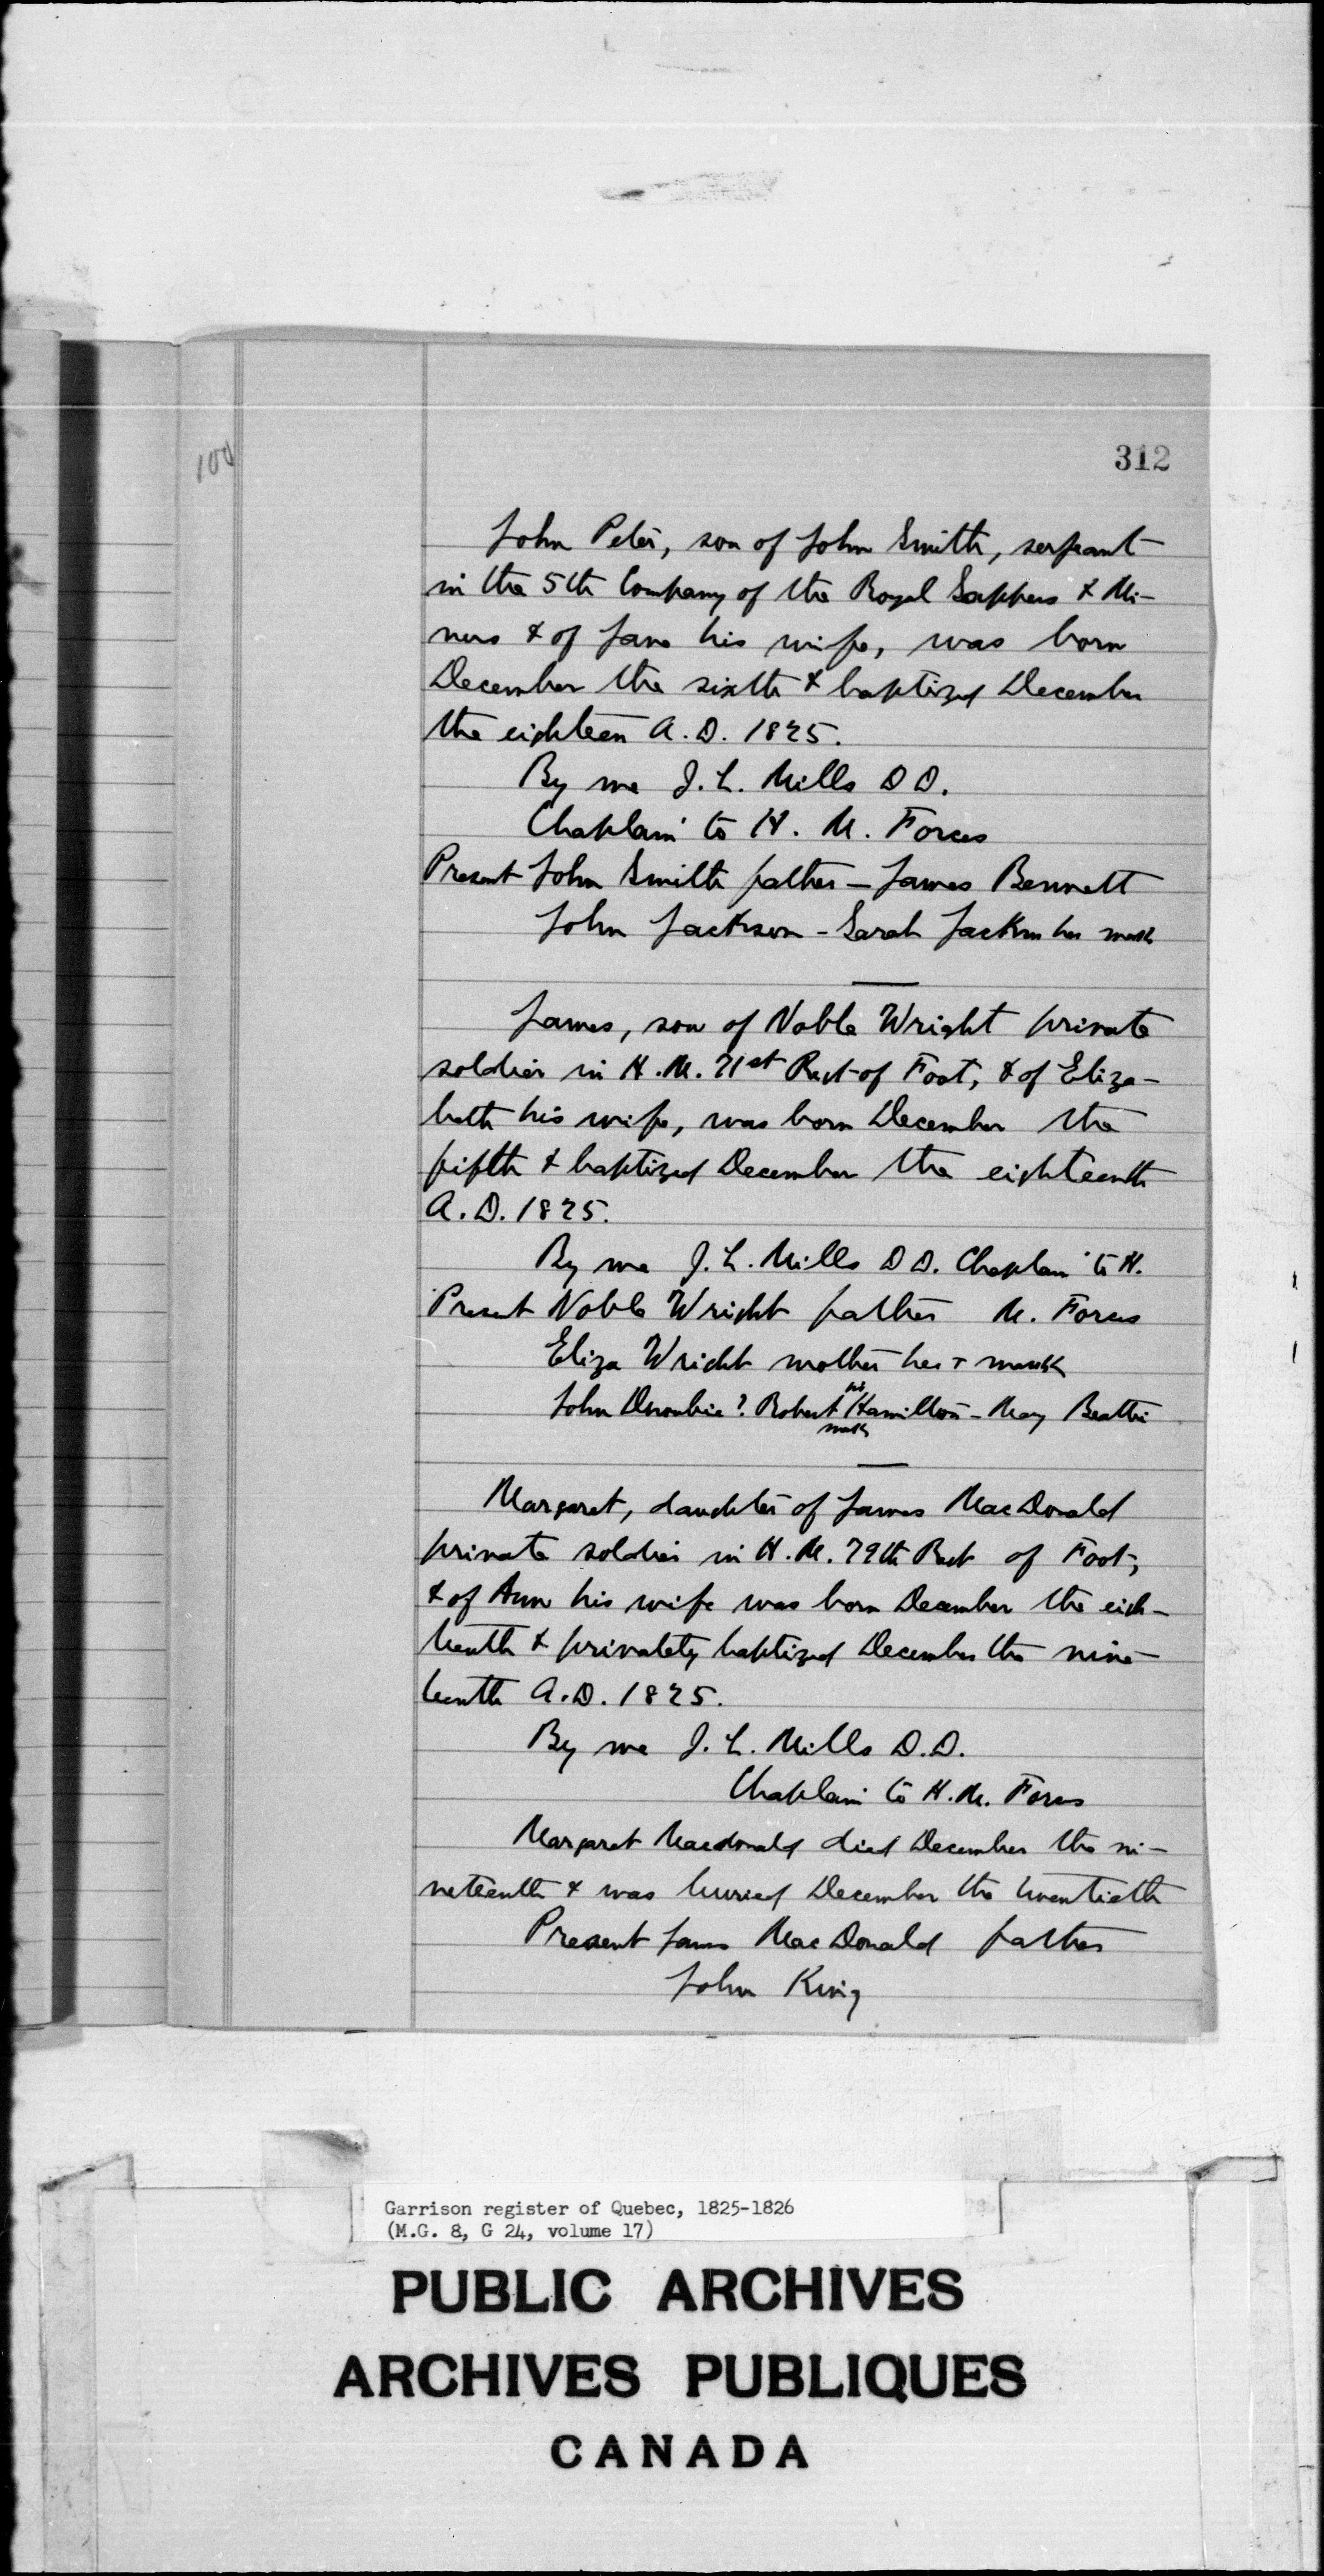 312
100
John Peter, son of John Smith, sergeant
in the 5th Company of the Royal Sappers & Mi-
ners & of Jane his wife, was born
December the sixth & baptized December
the eighteen A.D. 1825.
By me J. L. Mills D D.
Chaplain to H. M. Forces
Present John Smith father - James Bennett
John Jackson - Sarah Jackson her mark
James, son of Noble Wright private
soldier in H. M. 71st Regt of Foot, & of Eliza-
beth his wife, was born December the
fifth & baptized December the eighteenth
A.D. 1825.
By me J. L. Mills D D. Chaplain to H.
Present Noble Wright father M. Forces
Eliza Wright mother her + mark
John ? Robert his Hamilton - Mary Beattie
mark
Margaret, daughter of James MacDonald
private soldier in H. M. 79th Regt of Foot,
& of Ann his wife was born December the eigh-
teenth & privately baptized December the nine-
teenth A.D. 1825.
By me J. L. Mills D.D.
Chaplain to H. M. Forces
Margaret Macdonald died December the ni-
neteenth & was buried December the twentieth
Present James MacDonald father
John King
Garrison register of Quebec, 1825-1826
(M.G. 8, G 24, volume 17)
PUBLIC ARCHIVES
ARCHIVES PUBLIQUES
CANADA